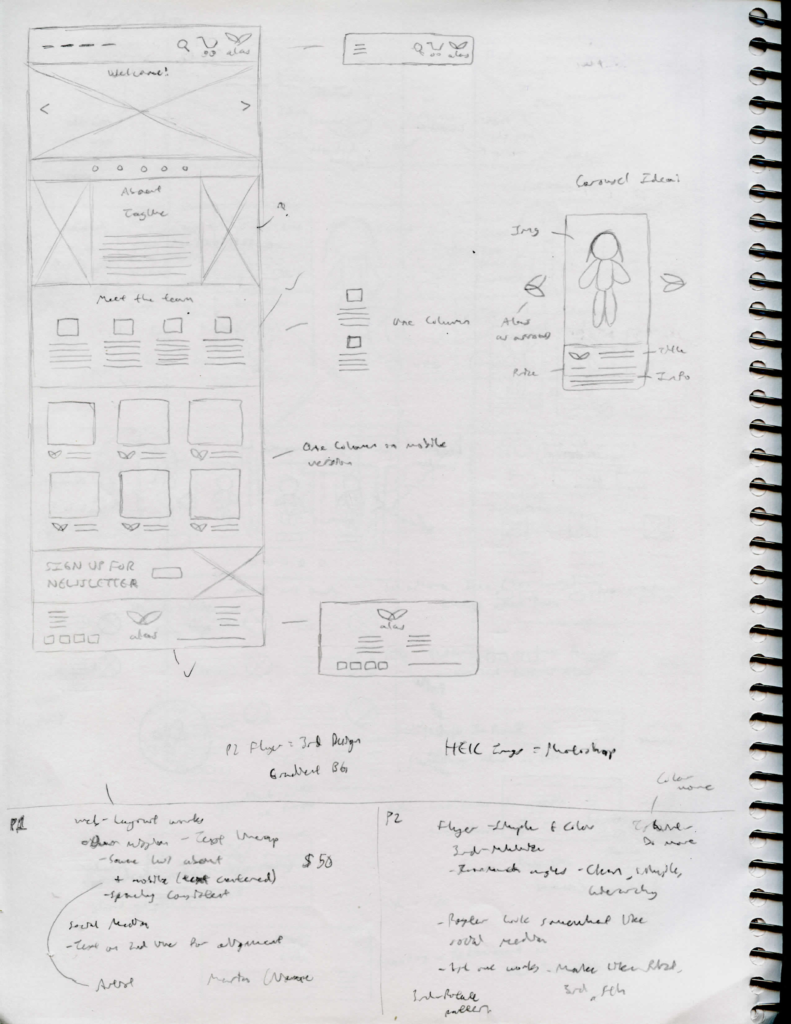 alas
alas
Welcome!
About
Tagline
Carousel Idea:
Img
Meet the team
One Column
Alas
as arrows
Title
Price
Info
One Column in mobile
version
SIGN UP FOR
NEWSLETTER
alas
alas
P2 Flyer = 3rd Design
Gradient BG
HEIC Image = Photoshop
Color
more
P1
Web - Layout works
- Text Lineup
- Same w/ about
+ mobile (text centered)
- Spacing Consistent
$50
Social Media
- Text on 2nd line for alignment
Artist
P2
Flyer - Simple & Color
Do more
3rd-
- Clean, simple,
hierarchy
- Poster look somewhat like
social media
- 1st one works - Make
3rd, 5th
3rd-
pattern